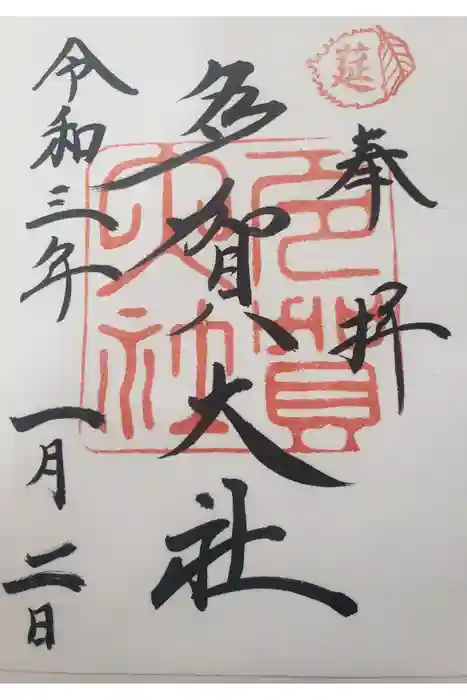 莚
奉拝
多賀大社
多賀大社
令和三年 一月二日